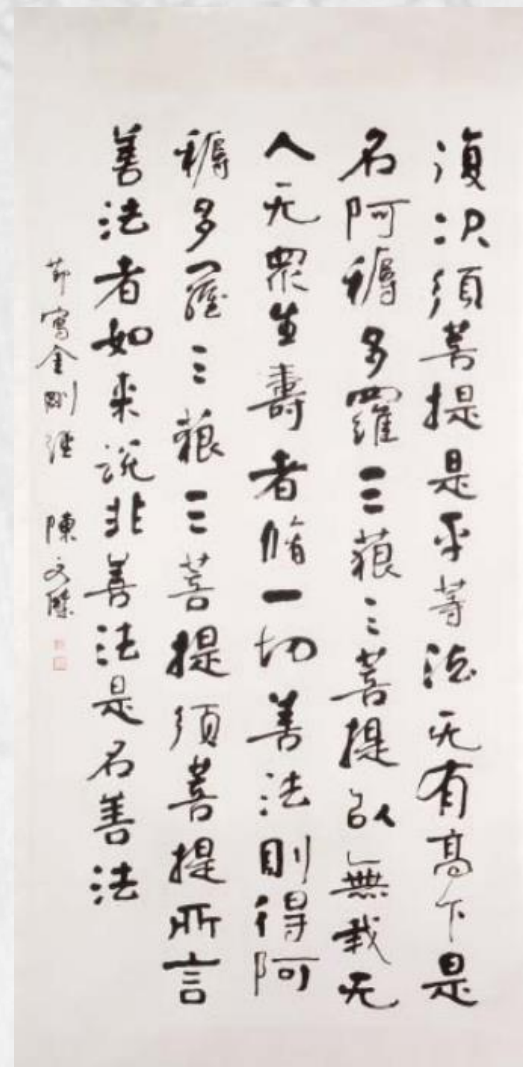 復次須菩提是平等法无有高下是
名阿耨多羅三藐三菩提以無我无
人无眾生壽者脩一切善法則得阿
耨多羅三藐三菩提須菩提所言
善法者如来說非善法是名善法
節寫金剛經 陳文